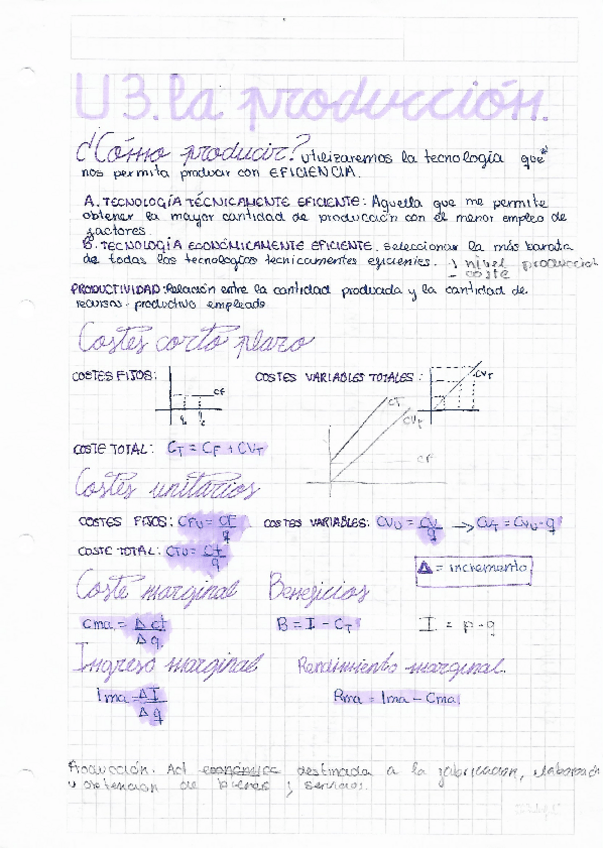 U3. la producción.
¿Cómo producir? utilizaremos la tecnología que
nos permita producir con EFICIENCIA.
A. TECNOLOGÍA TÉCNICAMENTE EFICIENTE: Aquella que me permite
obtener la mayor cantidad de producción con el menor empleo de
factores.
B. TECNOLOGÍA ECONÓMICAMENTE EFICIENTE. seleccionar la más barata
de todas las tecnologías tecnicamentes eficientes. nivel producción
- coste
PRODUCTIVIDAD: Relación entre la cantidad producida y la cantidad de
recursos productivo empleado
Costes corto plazo
COSTES FIJOS: CF
COSTES VARIABLES TOTALES: CVT
CT
CVT
CF
COSTE TOTAL: CT = CF + CVT
Costes unitarios
COSTES FIJOS: CFU = CF/q COSTES VARIABLES: CVU = CV/q → CVT = CVU · q
COSTE TOTAL: CTU = Ct/q
Δ = incremento
Coste marginal Beneficios
Cma = Δ Ct/Δ q B = I - CT I = p · q
Ingreso marginal Rendimiento marginal.
Ima = Δ I/Δ q Rma = Ima - Cma
Producción. Act económica destinada a la fabricación, elaboración
u obtención de bienes y servicios.